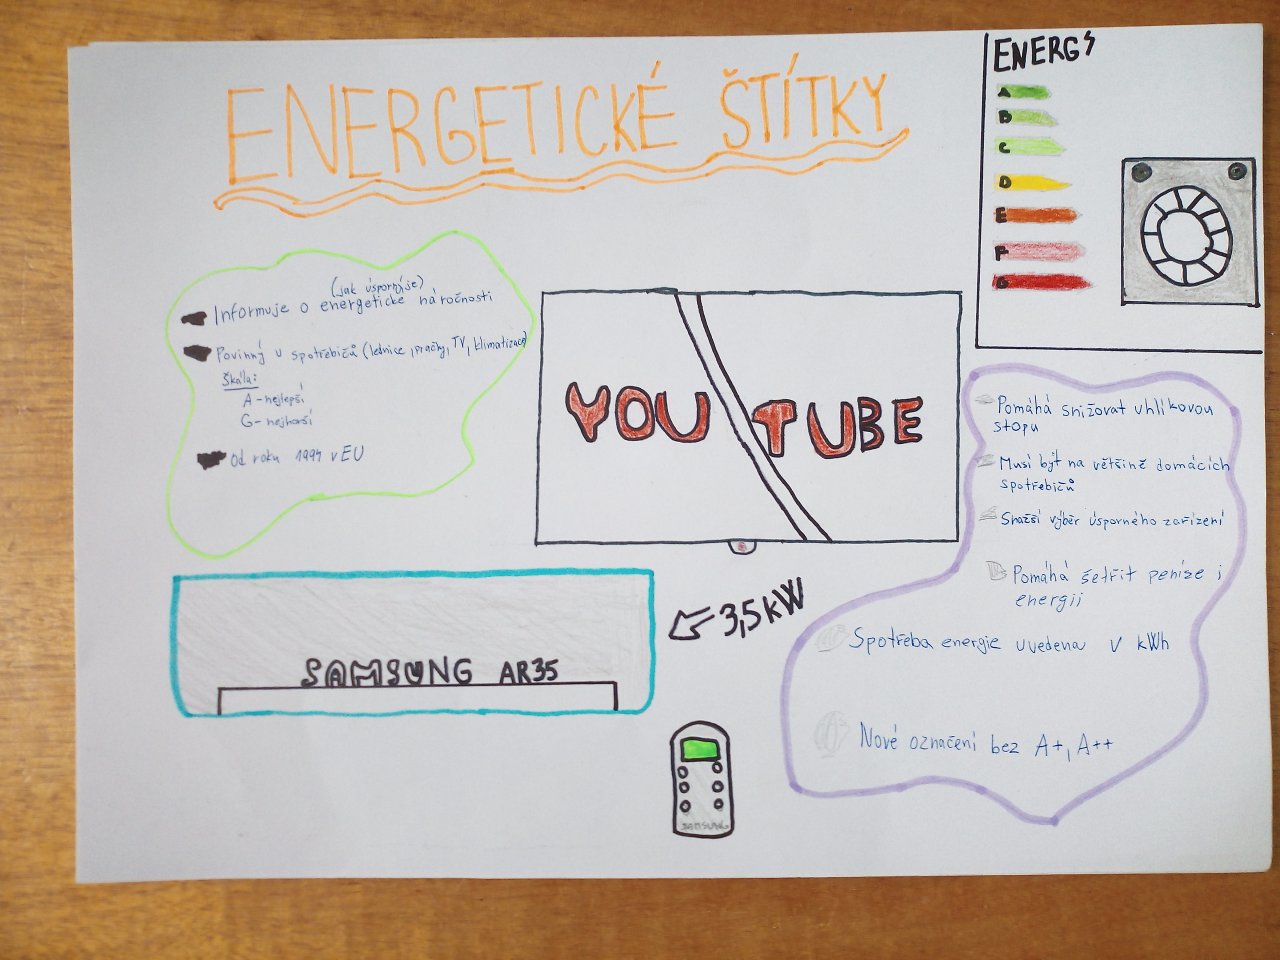 ENERGETICKÉ ŠTÍTKY
ENERG
A
B
C
D
E
F
G
(jak úsporný je)
Informuje o energetické náročnosti
Povinný u spotřebičů (lednice, pračky, TV, klimatizace)
Škála:
A - nejlepší
G - nejhorší
Od roku 1994 v EU
YOUTUBE
Pomáhá snižovat uhlíkovou
stopu
Musí být na většině domácích
spotřebičů
Snažší výběr úsporného zařízení
Pomáhá šetřit peníze i
energii
Spotřeba energie uvedena v kWh
Nové označení bez A+, A++
3,5 kW
SAMSUNG AR35
SAMSUNG